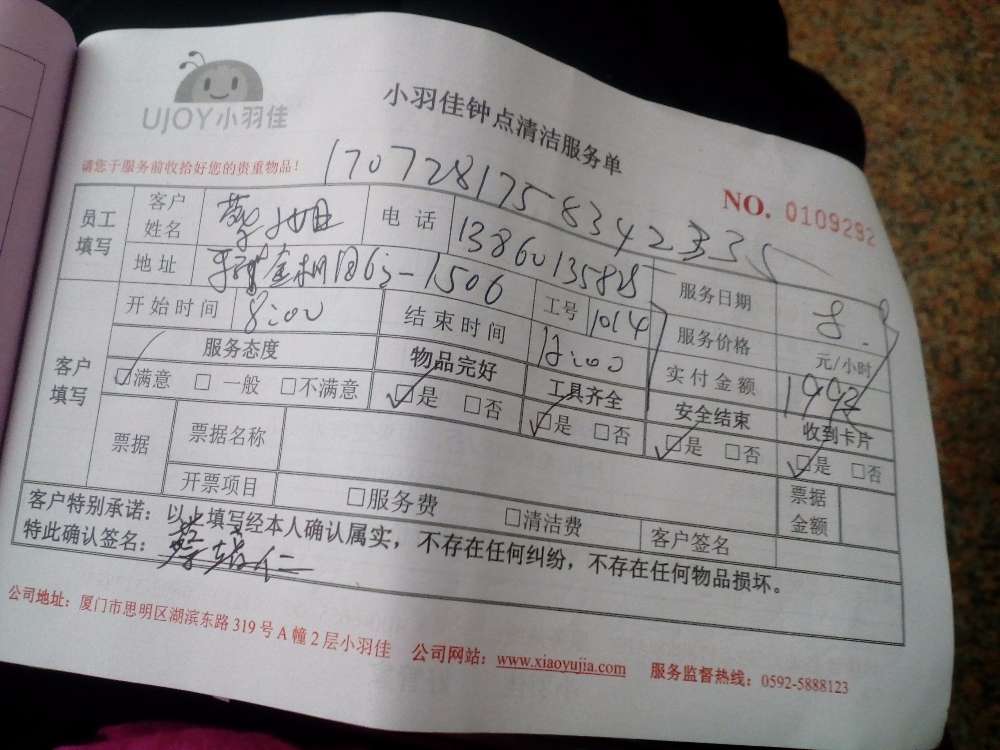 UJOY小羽佳
小羽佳钟点清洁服务单
请您于服务前收拾好您的贵重物品！
NO. 0109292
员工填写
客户姓名
电话
服务日期 8.8
地址
1506
工号 1014
服务价格 元/小时
客户填写
开始时间 8:00
结束时间 12:00
实付金额
服务态度
物品完好
工具齐全
安全结束
收到卡片
☑满意 □一般 □不满意
☑是 □否
☑是 □否
☑是 □否
☑是 □否
票据
票据名称
开票项目
□服务费
□清洁费
客户签名
票据金额
客户特别承诺：以上填写经本人确认属实，不存在任何纠纷，不存在任何物品损坏。
特此确认签名：
公司地址：厦门市思明区湖滨东路319号A幢2层小羽佳 公司网站：www.xiaoyujia.com 服务监督热线：0592-5888123